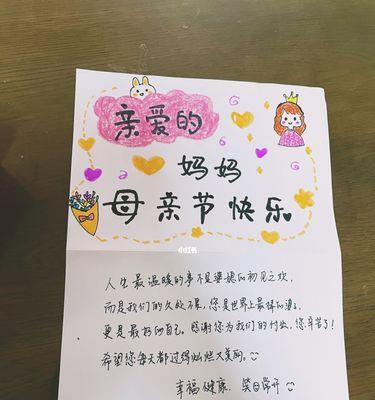 亲爱的
妈妈
母亲节快乐
小红书
人生最温暖的事不是婆媳的初见之欢,
而是我们的久处不厌,您是世界上最棒的婆
更是最好的自己。感谢您为我们的付出,您辛苦了!
希望您每天都过得灿烂又美丽。
幸福健康,笑口常开